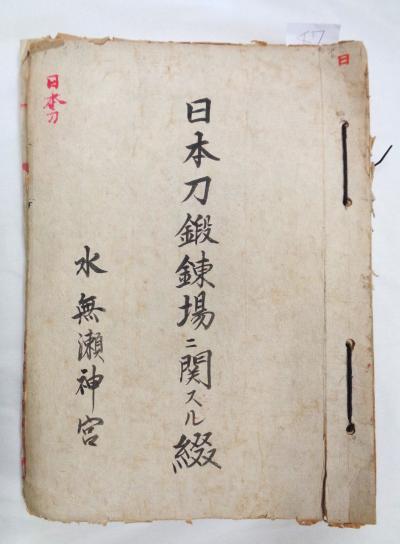 日
日本刀鍛錬場ニ関スル綴
水無瀬神宮
日本刀